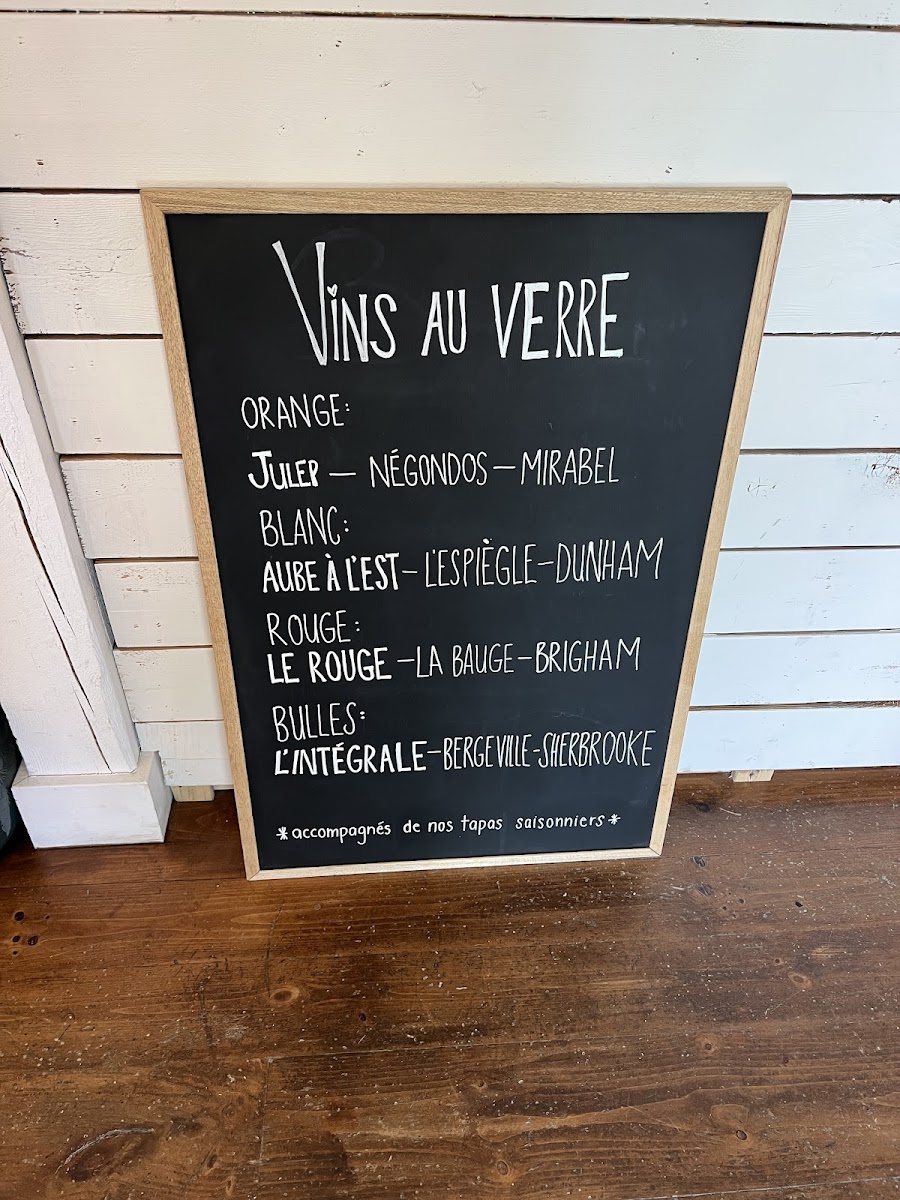 VINS AU VERRE
ORANGE:
JULEP — NÉGONDOS — MIRABEL
BLANC:
AUBE À L'EST - L'ESPIÈGLE - DUNHAM
ROUGE:
LE ROUGE - LA BAUGE - BRIGHAM
BULLES:
L'INTÉGRALE - BERGEVILLE - SHERBROOKE
*accompagnés de nos tapas saisonniers*